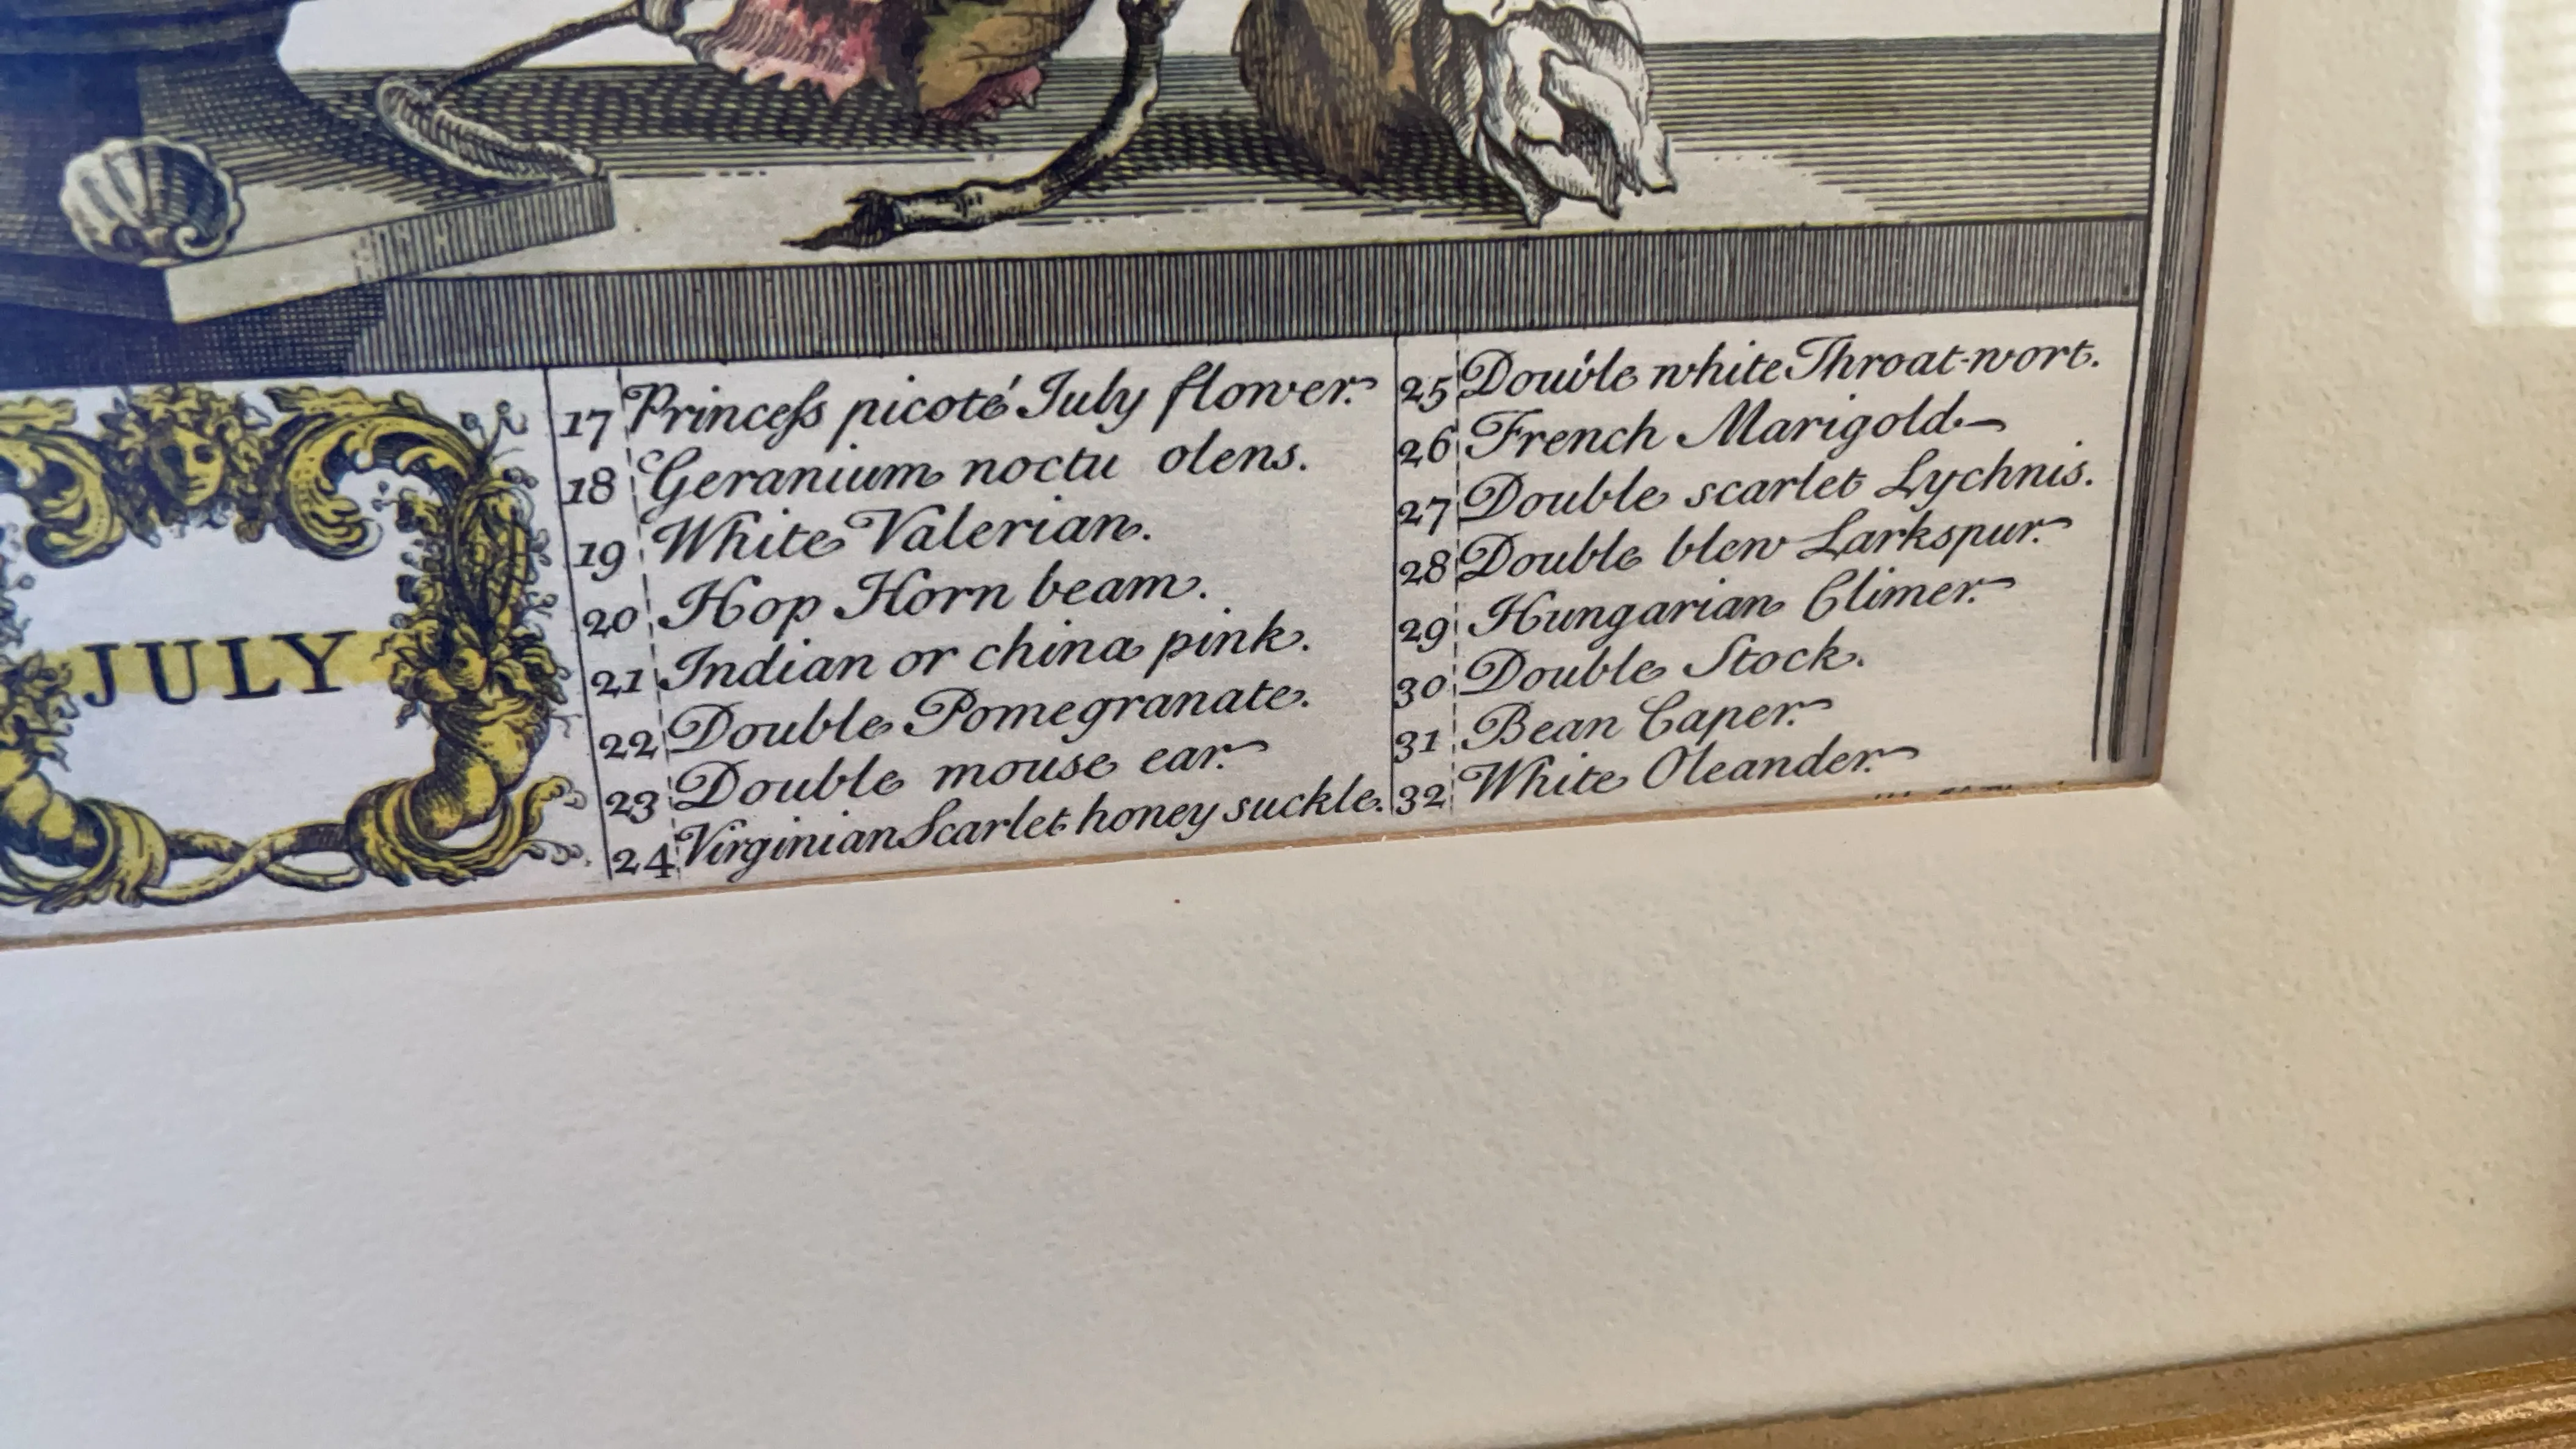 JULY
17 Princeſs picoté July flower.
18 Geranium noctu olens.
19 White Valerian.
20 Hop Horn beam.
21 Indian or china pink.
22 Double Pomegranate.
23 Double mouse ear.
24 Virginian Scarlet honey suckle.
25 Double white Throat-wort.
26 French Marigold.
27 Double scarlet Lychnis.
28 Double blew Larkspur.
29 Hungarian Climer.
30 Double Stock.
31 Bean Caper.
32 White Oleander.